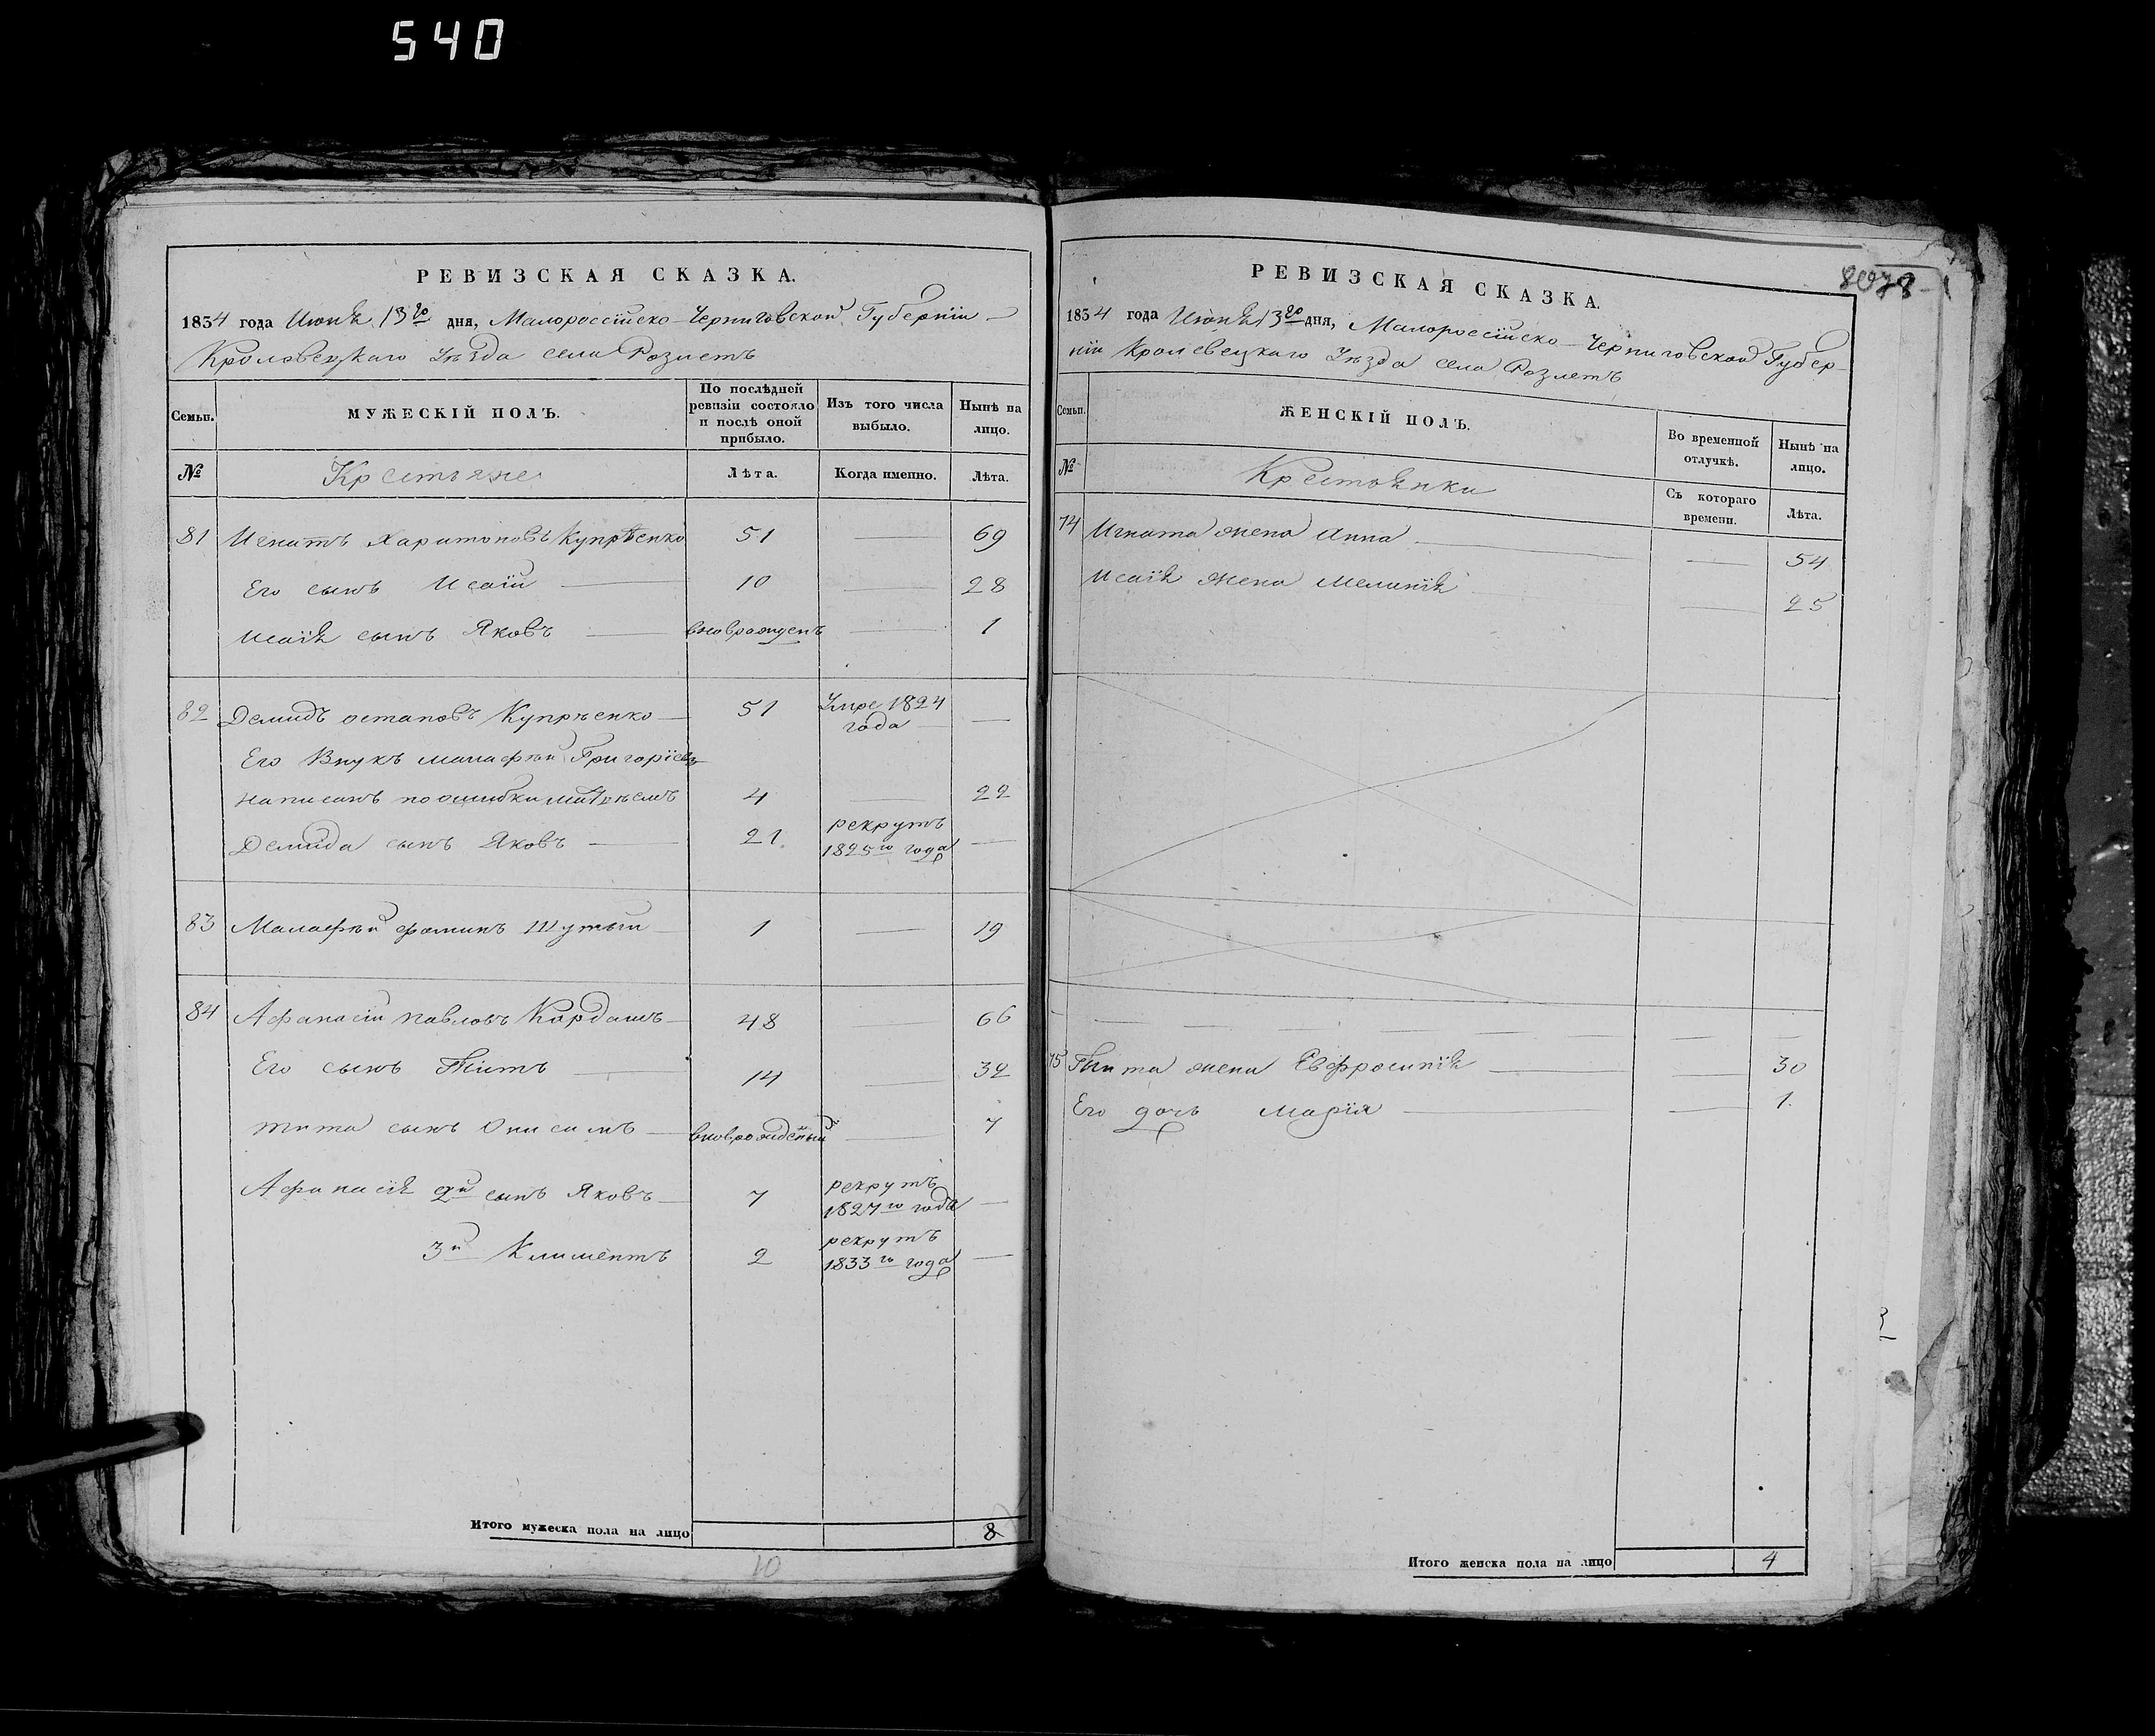 540
РЕВИЗСКАЯ СКАЗКА.
1834 года Июня 13го дня, Малороссійско-Черниговской Губерніи
Кролевецкаго Уѣзда села Розлетъ
Семьи. МУЖЕСКІЙ ПОЛЪ. По послѣдней ревизіи состояло и послѣ оной прибыло. Изъ того числа выбыло. Нынѣ на лицо.
№ Крестьяне Лѣта. Когда именно. Лѣта.
81 Игнатъ Харитоновъ Купрѣенко 51 — 69
Его сынъ Исаій — 10 — 28
Исаія сынъ Яковъ — вновьрожденъ — 1
82 Демидъ Остаповъ Купрѣенко — 51 Умре 1824 года —
Его Внукъ Малафѣй Григоріевъ
написанъ по ошибки 4 — 22
Демида сынъ Яковъ — 21 рекрутъ 1825го года —
83 Малафѣй Фоминъ Шутый 1 — 19
84 Афанасій Павловъ Кордашъ 48 — 66
Его сынъ Титъ — 14 — 32
Тита сынъ Онисимъ — вноврожденый — 7
Афанасія 2й сынъ Яковъ — 7 рекрутъ 1827го года —
3й Климентъ 2 рекрутъ 1833го года —
Итого мужеска пола на лицо 8
10
РЕВИЗСКАЯ СКАЗКА.
1834 года Июня 13го дня, Малороссійско-Черниговской Губер-
ніи Кролевецкаго Уѣзда села Розлетъ
Семьи. ЖЕНСКІЙ ПОЛЪ. Во временной отлучкѣ. Нынѣ на лицо.
№ Крестьянки Съ котораго времени. Лѣта.
74 Игната жена Анна — — 54
Исаія жена Меланія — 25
75 Тита жена Евфросинія — — 30
Его дочь Марія — — 1
Итого женска пола на лицо 4